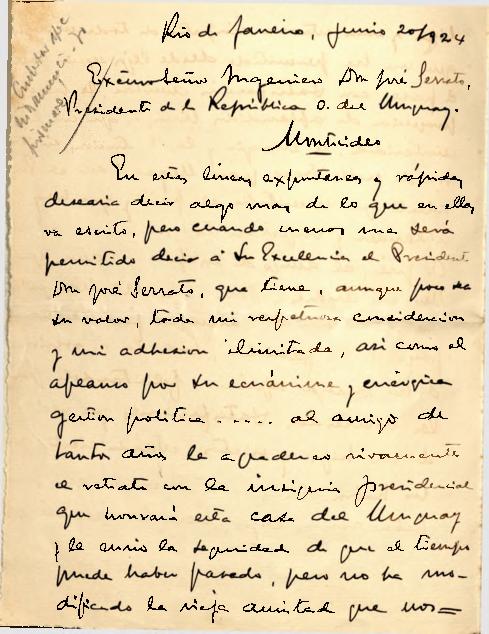 Rio de Janeiro, Junio 20/924
Excmo Señor Ingeniero Don José Serrato,
Presidente de la República O. del Uruguay.
Montevideo
En estas lineas expontaneas y rápidas
desearia decir algo mas de lo que en ellas
va escrito, pero cuando menos me será
permitido decir á Su Excelencia el Presidente
Don José Serrato, que tiene, aunque poco sea
su valor, toda mi respetuosa consideracion
y mi adhesion ilimitada, asi como el
aplauso por su ecuánime y enérgica
gestion politica ..... al amigo de
tantos años le agradezco vivamente
el retrato con la insignia presidencial
que honrará esta casa del Uruguay
y le envio la seguridad de que el tiempo
puede haber pasado, pero no ha mo-
dificado la vieja amistad que nos=